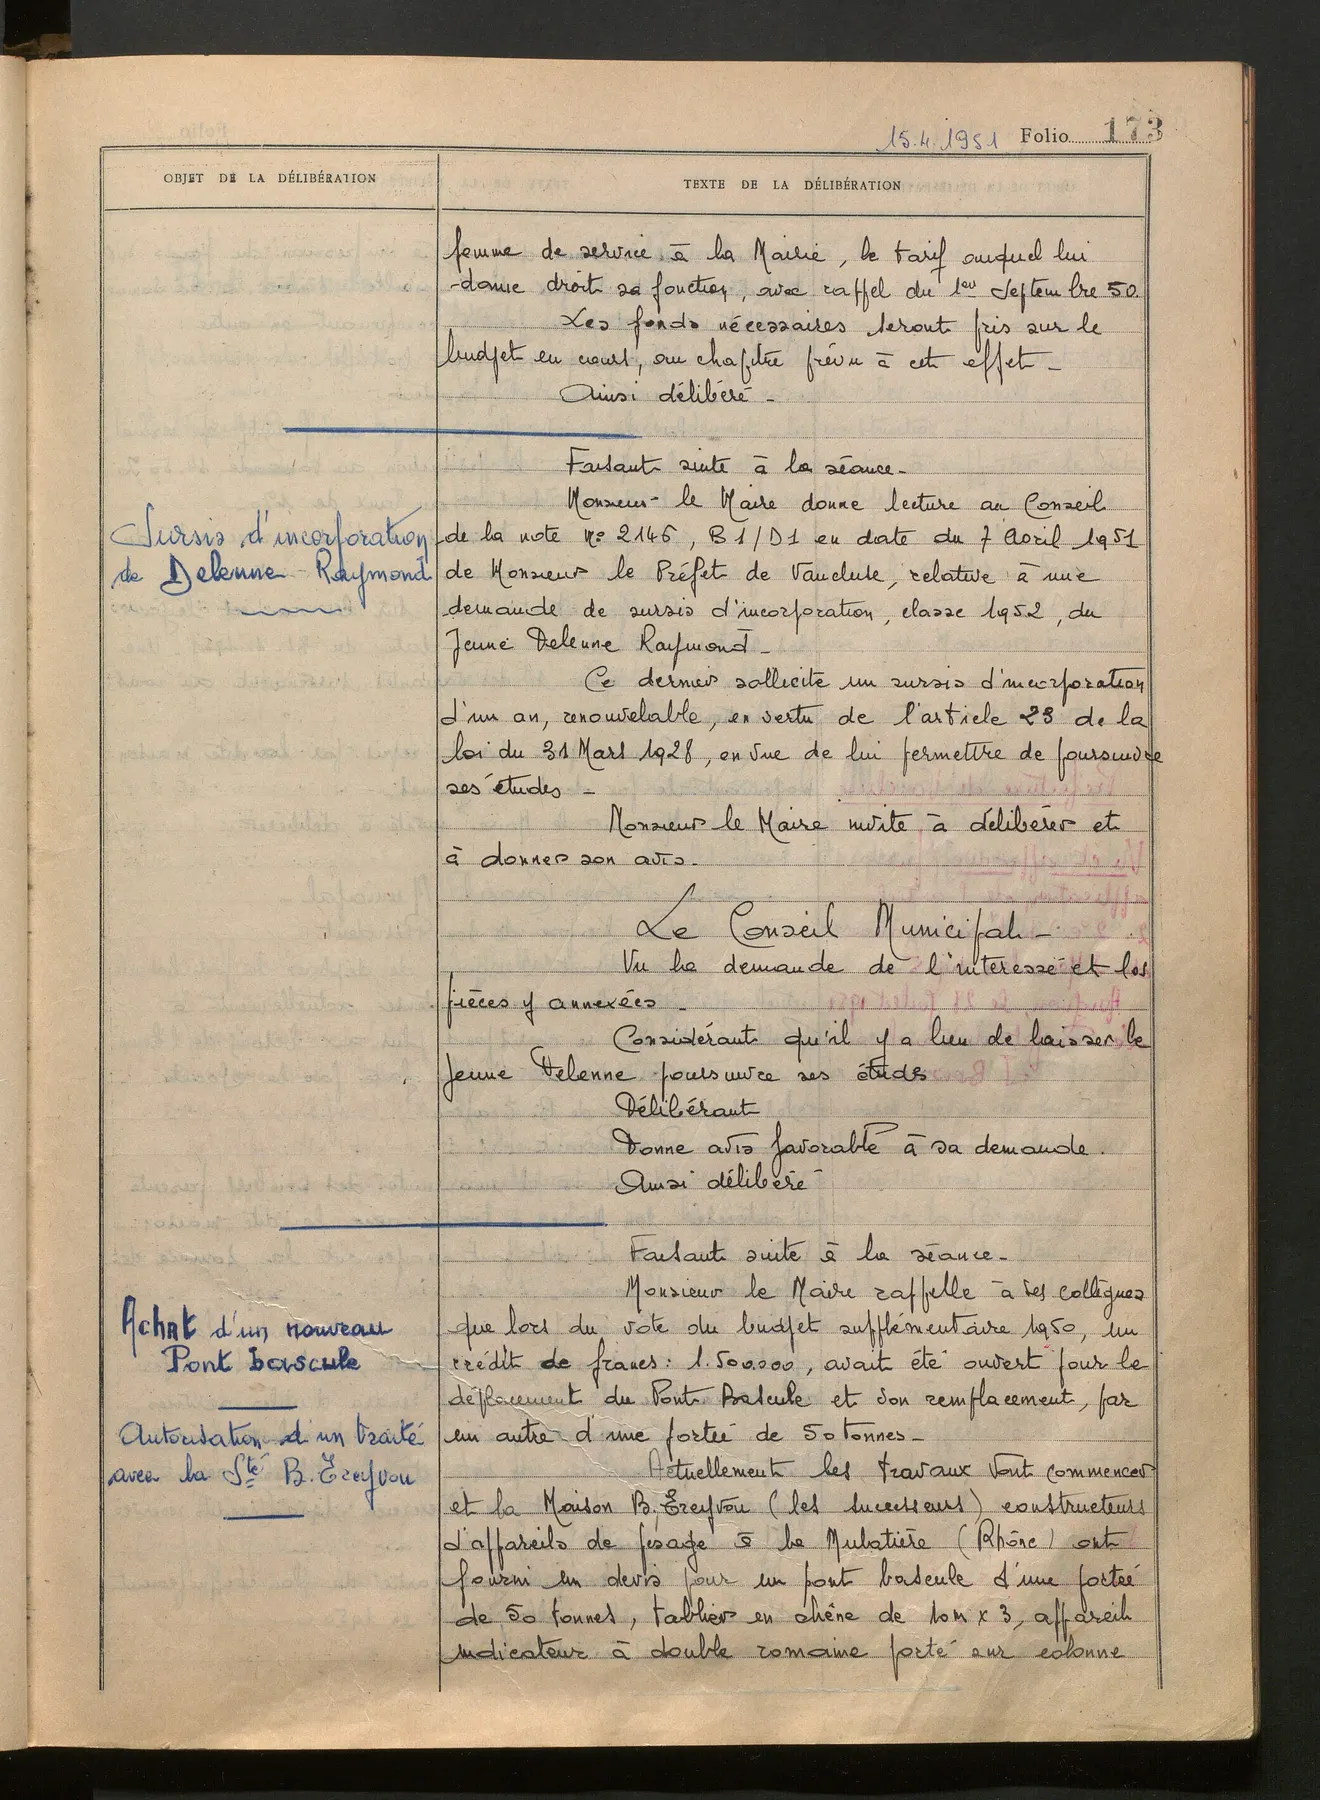 15.4.1951 Folio 173
OBJET DE LA DÉLIBÉRATION
TEXTE DE LA DÉLIBÉRATION
femme de service à la Mairie, le tarif auquel lui
donne droit sa fonction, avec rappel du 1er Septembre 50.
Les fonds nécessaires seront pris sur le
budget en cours, au chapitre prévu à cet effet -
Ainsi délibéré -
Faisant suite à la séance -
Sursis d'incorporation
de Delenne Raymond
Monsieur le Maire donne lecture au Conseil
de la note No 2146, B1/D1 en date du 7 Avril 1951
de Monsieur le Préfet de Vaucluse, relative à une
demande de sursis d'incorporation, classe 1952, du
Jeune Delenne Raymond -
Ce dernier sollicite un sursis d'incorporation
d'un an, renouvelable, en vertu de l'article 23 de la
loi du 31 Mars 1928, en vue de lui permettre de poursuivre
ses études -
Monsieur le Maire invite à délibérer et
à donner son avis -
Le Conseil Municipal -
Vu la demande de l'intéressé et les
pièces y annexées -
Considérant qu'il y a lieu de laisser le
Jeune Delenne poursuivre ses études
Délibérant
Donne avis favorable à sa demande.
Ainsi délibéré
Faisant suite à la séance -
Achat d'un nouveau
Pont bascule
Autorisation d'un traité
avec la Sté B. Trayvou
Monsieur le Maire rappelle à ses collègues
que lors du vote du budget supplémentaire 1950, un
crédit de francs : 1.500.000, avait été ouvert pour le
déplacement du Pont Bascule et son remplacement, par
un autre d'une portée de 50 Tonnes -
Actuellement les travaux vont commencer
et la Maison B. Trayvou (les successeurs) constructeurs
d'appareils de pesage à la Mulatière (Rhône) ont
fourni un devis pour un pont bascule d'une portée
de 50 tonnes, tablier en chêne de 10m x 3, appareil
indicateur à double romaine porté sur colonne